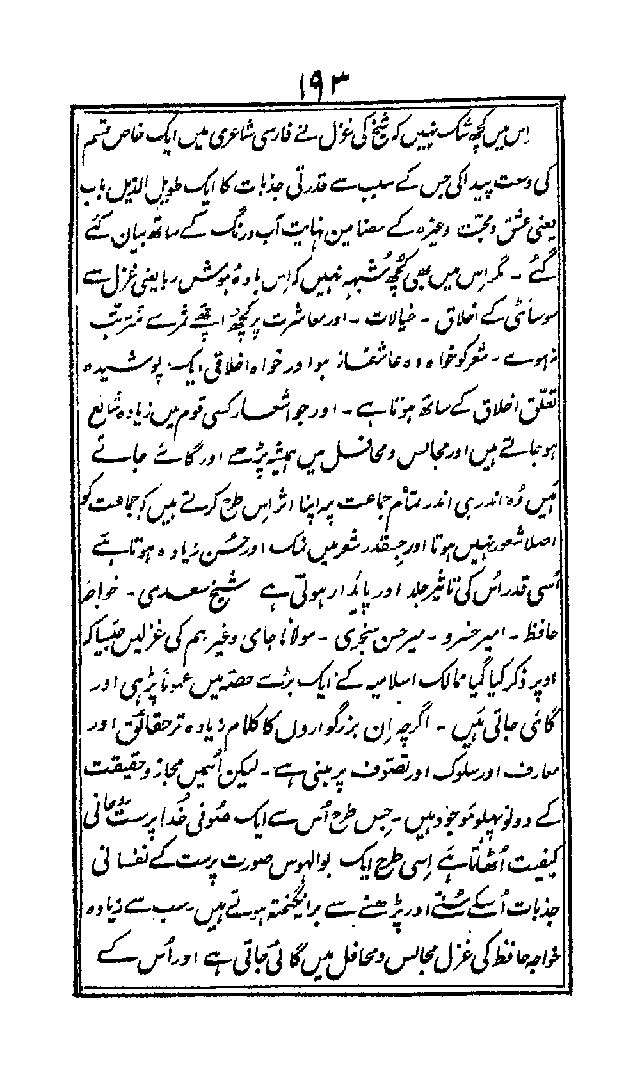 ۱۹۳
اس میں کچھ شک نہیں کہ شیخ کی غزل نے فارسی شاعری میں ایک خاص قسم
کی وسعت پیدا کی جس کے سبب سے قدرتی جذبات کا ایک طویل الذیل باب
یعنی عشق و محبت وغیرہ کے مضامین نہایت آب و رنگ کے ساتھ بیان کئے
گئے - مگر اس میں بھی کچھ شبہہ نہیں کہ اس بادۂ ہوش ربا یعنی غزل سے
سوسائٹی کے اخلاق - خیالات - اور معاشرت پر کچھ اچھے ثمرے مترتب
نہوے - شعر کو خواہ وہ عاشقانہ ہو اور خواہ اخلاقی ایک پوشیدہ
تعلق اخلاق کے ساتھ ہوتا ہے - اور جو اشعار کسی قوم میں زیادہ شایع
ہو جاتے ہیں اور مجالس و محافل میں ہمیشہ پڑھے اور گائے جاتے
ہیں وہ اندر ہی اندر تمام جماعت پر اپنا اثر اس طرح کرتے ہیں کہ جماعت کو
اصلا شعور نہیں ہوتا اور جسقدر شعر میں نمک اور حسن زیادہ ہوتا ہے
اُسی قدر اُس کی تاثیر جلد اور پائدار ہوتی ہے شیخ سعدی - خواجہ
حافظ - امیر خسرو - میر حسن سنجری - مولانا جامی وغیرہم کی غزلیں جیسا کہ
اوپر ذکر کیا گیا ممالک اسلامیہ کے ایک بڑے حصہ میں عموماً پڑھی اور
گائی جاتی ہیں - اگرچہ ان بزرگواروں کا کلام زیادہ تر حقائق اور
معارف اور سلوک اور تصوف پر مبنی ہے - لیکن اُسمیں مجاز و حقیقت
کے دونو پہلو موجود ہیں - جس طرح اُس سے ایک صوفی خدا پرست روحانی
کیفیت اُٹھاتا ہے اسی طرح ایک بوالہوس صورت پرست کے نفسانی
جذبات اُسکے سننے اور پڑھنے سے برانگیختہ ہوتے ہیں - سب سے زیادہ
خواجہ حافظ کی غزل مجالس و محافل میں گائی جاتی ہے اور اُس کے